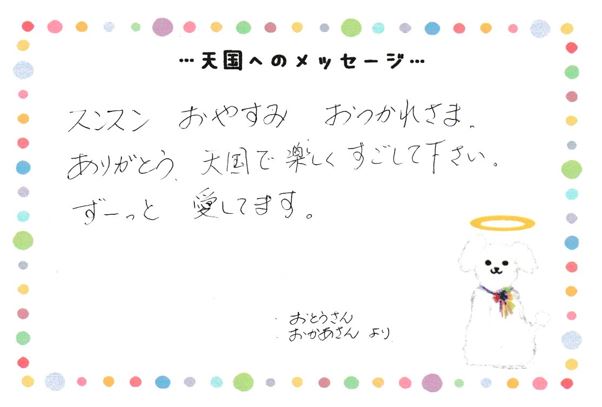 …天国へのメッセージ…
スンスン おやすみ おつかれさま。
ありがとう、天国で楽しくすごして下さい。
ずーっと 愛してます。
おとうさん
おかあさん より